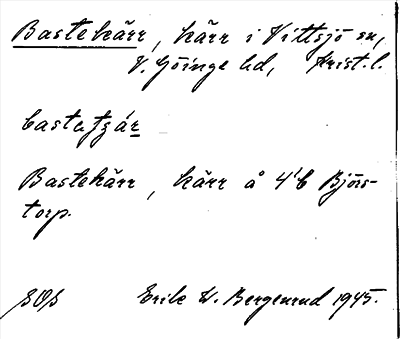 Bastekärr, kärr i Vittsjö sn,
V. Göinge hd, Krist. l.
bastetɟár
Bastekärr, kärr å 4'6 Björs-
torp.
SOB Erik W. Bergenrud 1945.